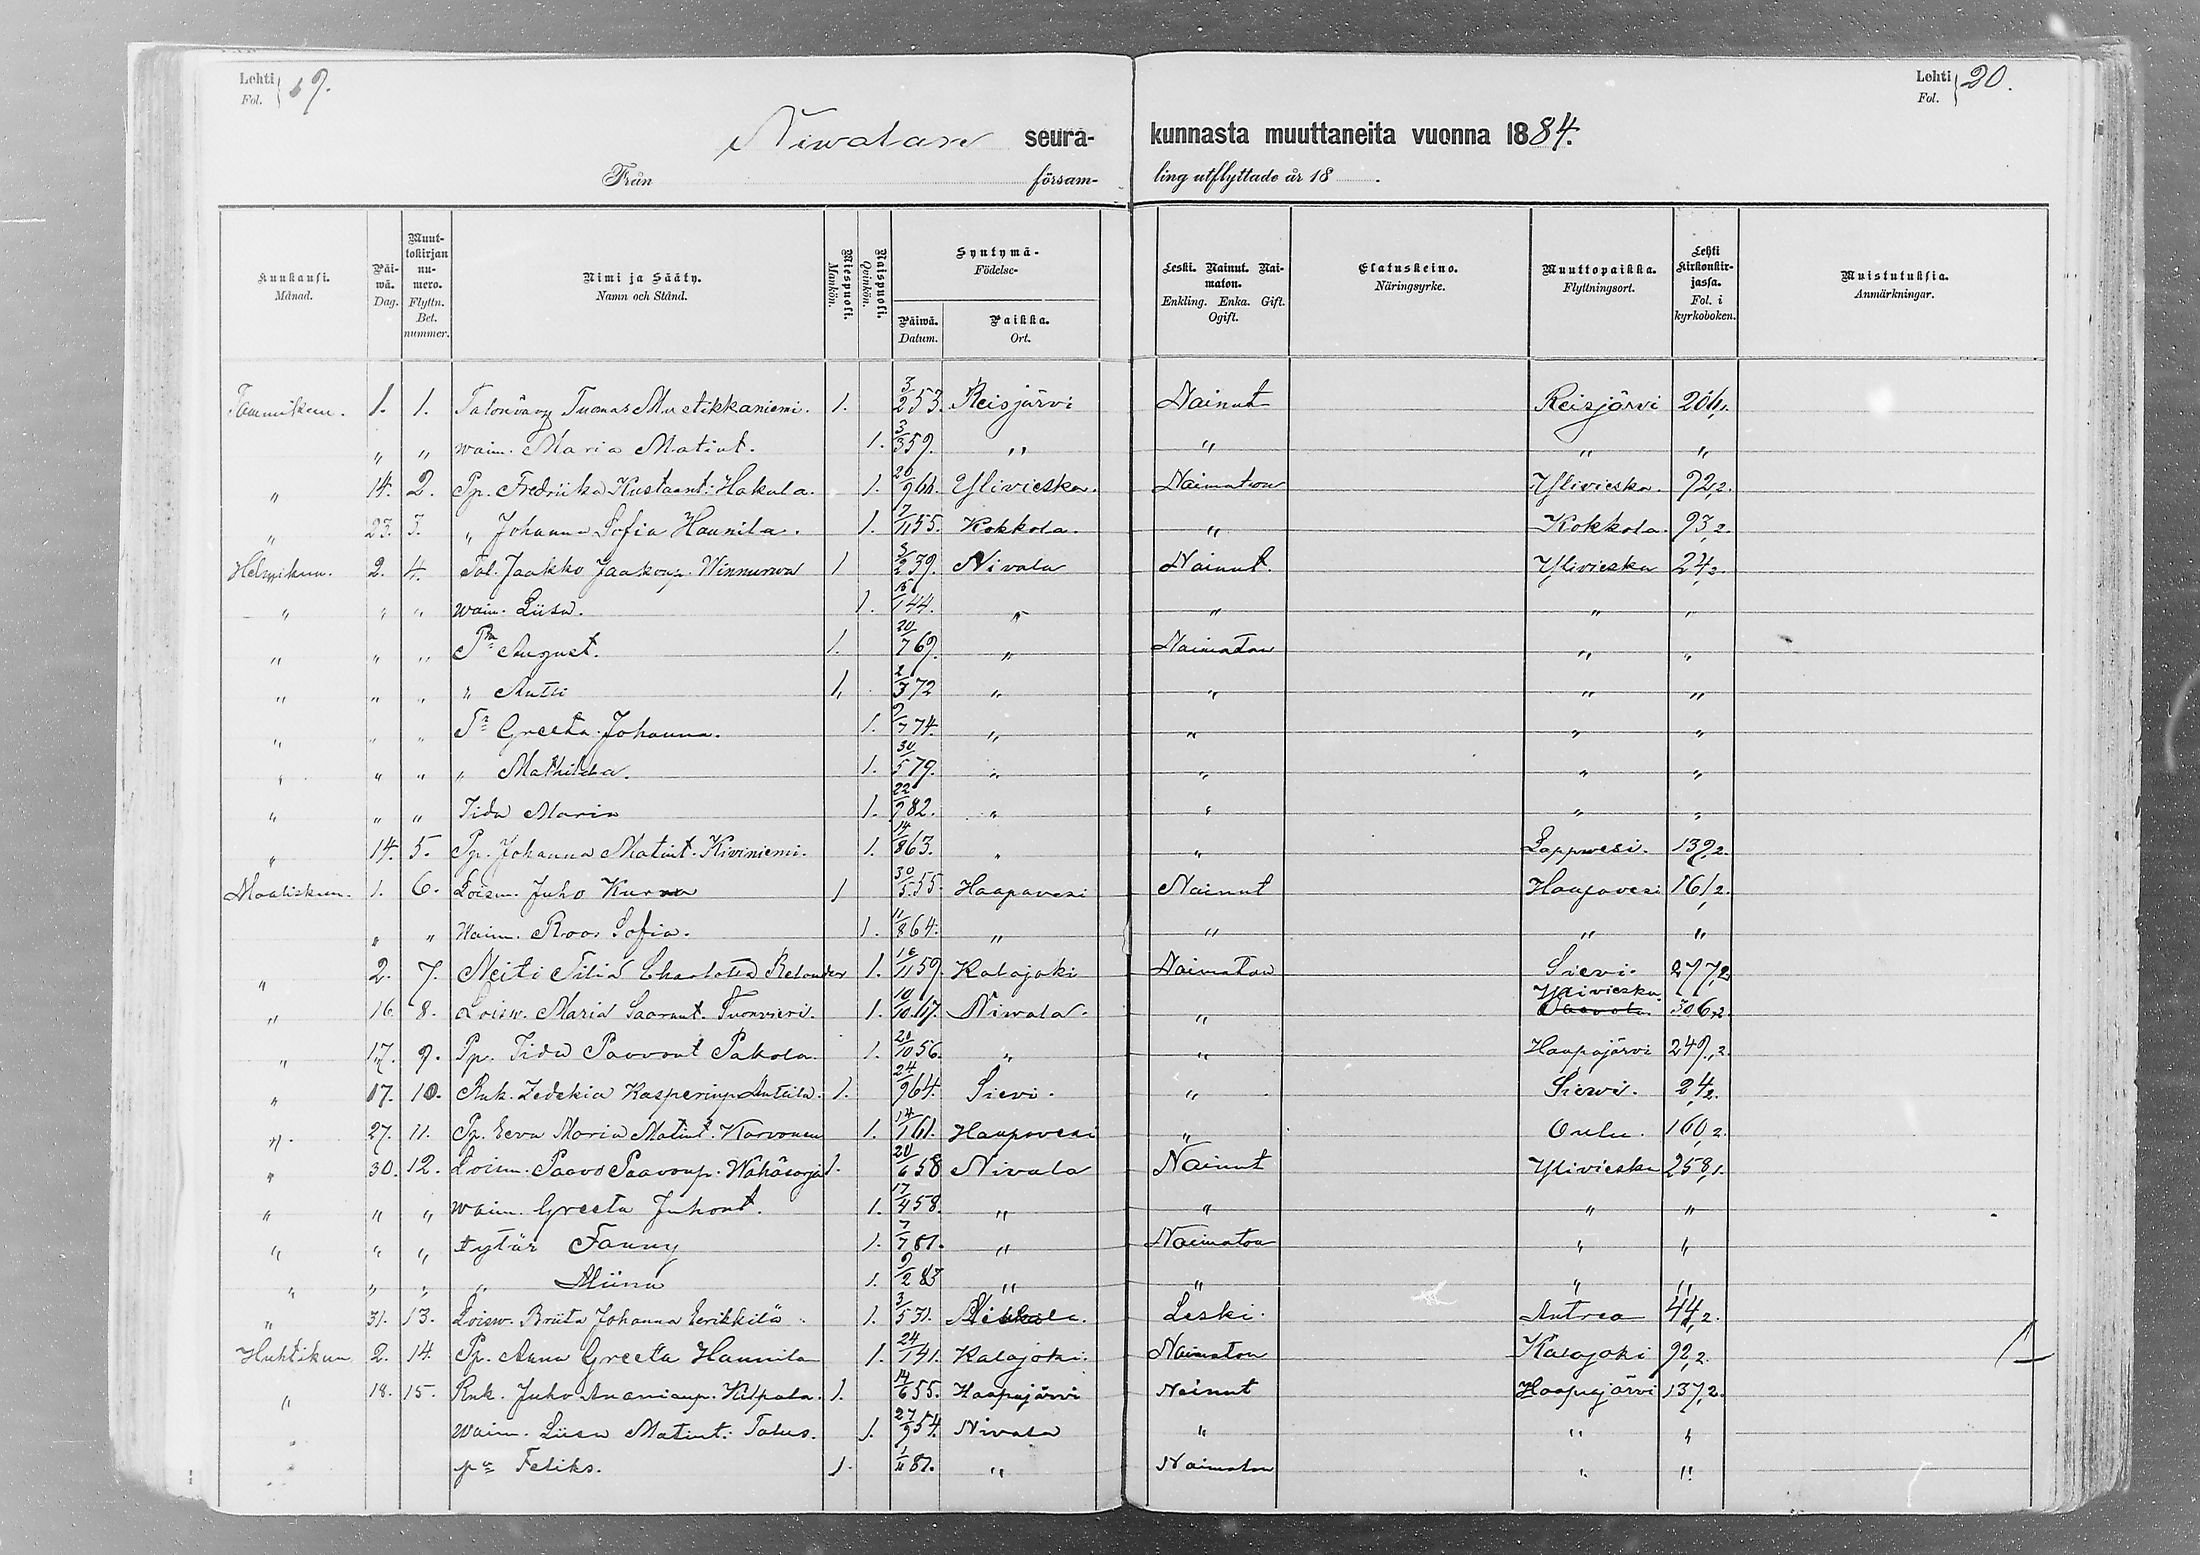 Lehti Fol. 19.
Lehti Fol. 20.
Niwalan seura- kunnasta muuttaneita vuonna 1884.
Från församling utflyttade år 18 .
Kuukausi. Månad.
Päiwä. Dag.
Muuttokirjan numero. Flyttn. Bet. nummer.
Nimi ja Sääty. Namn och Stånd.
Miespuoli. Mankön.
Naispuoli. Qvinkön.
Syntymä- Födelse-
Päiwä. Datum.
Paikka. Ort.
Leski. Nainut. Naimaton. Enkling. Enka. Gift. Ogift.
Elatuskeino. Näringsyrke.
Muuttopaikka. Flyttningsort.
Lehti Kirkonkirjassa. Fol. i kyrkoboken.
Muistutuksia. Anmärkningar.
Tammikuu. 1. 1. Tuomas Mustikkaniemi. 1. 3/2 53. Reisjärvi Nainut Reisjärvi
" " waim. Maria Matint. 1. 3/3 59. " " " "
" 14. 2. Pp. Fredrika Kustaant. Hakala. 1. Ylivieska. Naimaton Ylivieska. 92,2.
" 23. 3. " Johanna Sofia Hannila. 1. 7/11 55. Kokkola. " Kokkola. 93,2.
Helmikuu. 2. 4. Tal. Jaakko Jaakonp. Winnurwa 1 3/2 39. Nivala Nainut. Ylivieska 24,2.
" " " waim. Liisa. 1. 44. " " " "
" " " Pa August. 1. 20/7 69. " Naimaton " "
" " " " Antti 1. 2/3 72 " " " "
" " " Tr Greeta Johanna. 1. 9/7 74. " " " "
" " " " Mathilda. 1. 30/5 79. " " " "
" " " Iida Maria 1. 22/9 82. " " " "
" 14. 5. Pp. Johanna Matint. Kiviniemi. 1. 14/8 63. " " Lappwesi. 139,2.
Maaliskuu. 1. 6. Loism. Juho 1 30/5 55. Haapavesi Nainut Haapavesi 161,2.
" " Waim. Roos Sofia. 1. 11/8 64. " " " "
" 2. 7. Neiti Tilia Charlotta Relander 1. 16/11 59. Kalajoki Naimaton Sievi. 277,2
" 16. 8. Loisw. Maria Saarant. 1. 10/10 Niwala. " Ylivieska. 306,2
" 17. 9. Pp. Iida Paavont Pakola. 1. 20/10 56. " " Haapajärvi 249,2.
" 17. 10. Rnk. Zedekia Kasperinp. Anttila. 1. 24/9 64. Sievi. " Siewi. 24,2.
" 27. 11. Pp. Eeva Maria Matint. Karvonen 1. 14/1 61. Haapavesi " Oulu. 160,2.
" 30. 12. Loism. Paavo Paavonp. Wähäsarja 1. 20/6 58 Nivala Nainut Ylivieska 258,1.
" " " waim. Greeta Juhont. 1. 17/4 58. " " " "
" " " tytär Fanny 1. 7/7 81. " Naimaton " "
" " " " Miina 1. 9/2 83 " " " "
" 31. 13. Loisw. Briita Johanna Eerikkilä. 1. 3/5 31. Leski. Antrea 44,2.
Huhtikuu 2. 14. Pp. Anna Greeta Hannila 1. 24/1 41. Kalajoki. Naimaton Kalajoki 92,2.
" 18. 15. Rnk. Juho Ananianp. Kilpala. 1. 14/6 55. Haapajärvi Nainut Haapajärvi 137,2.
" waim. Liisa Matint. Talus. 1. 27/9 54. Nivala " " "
" Feliks. 1. 81. " Naimaton " "